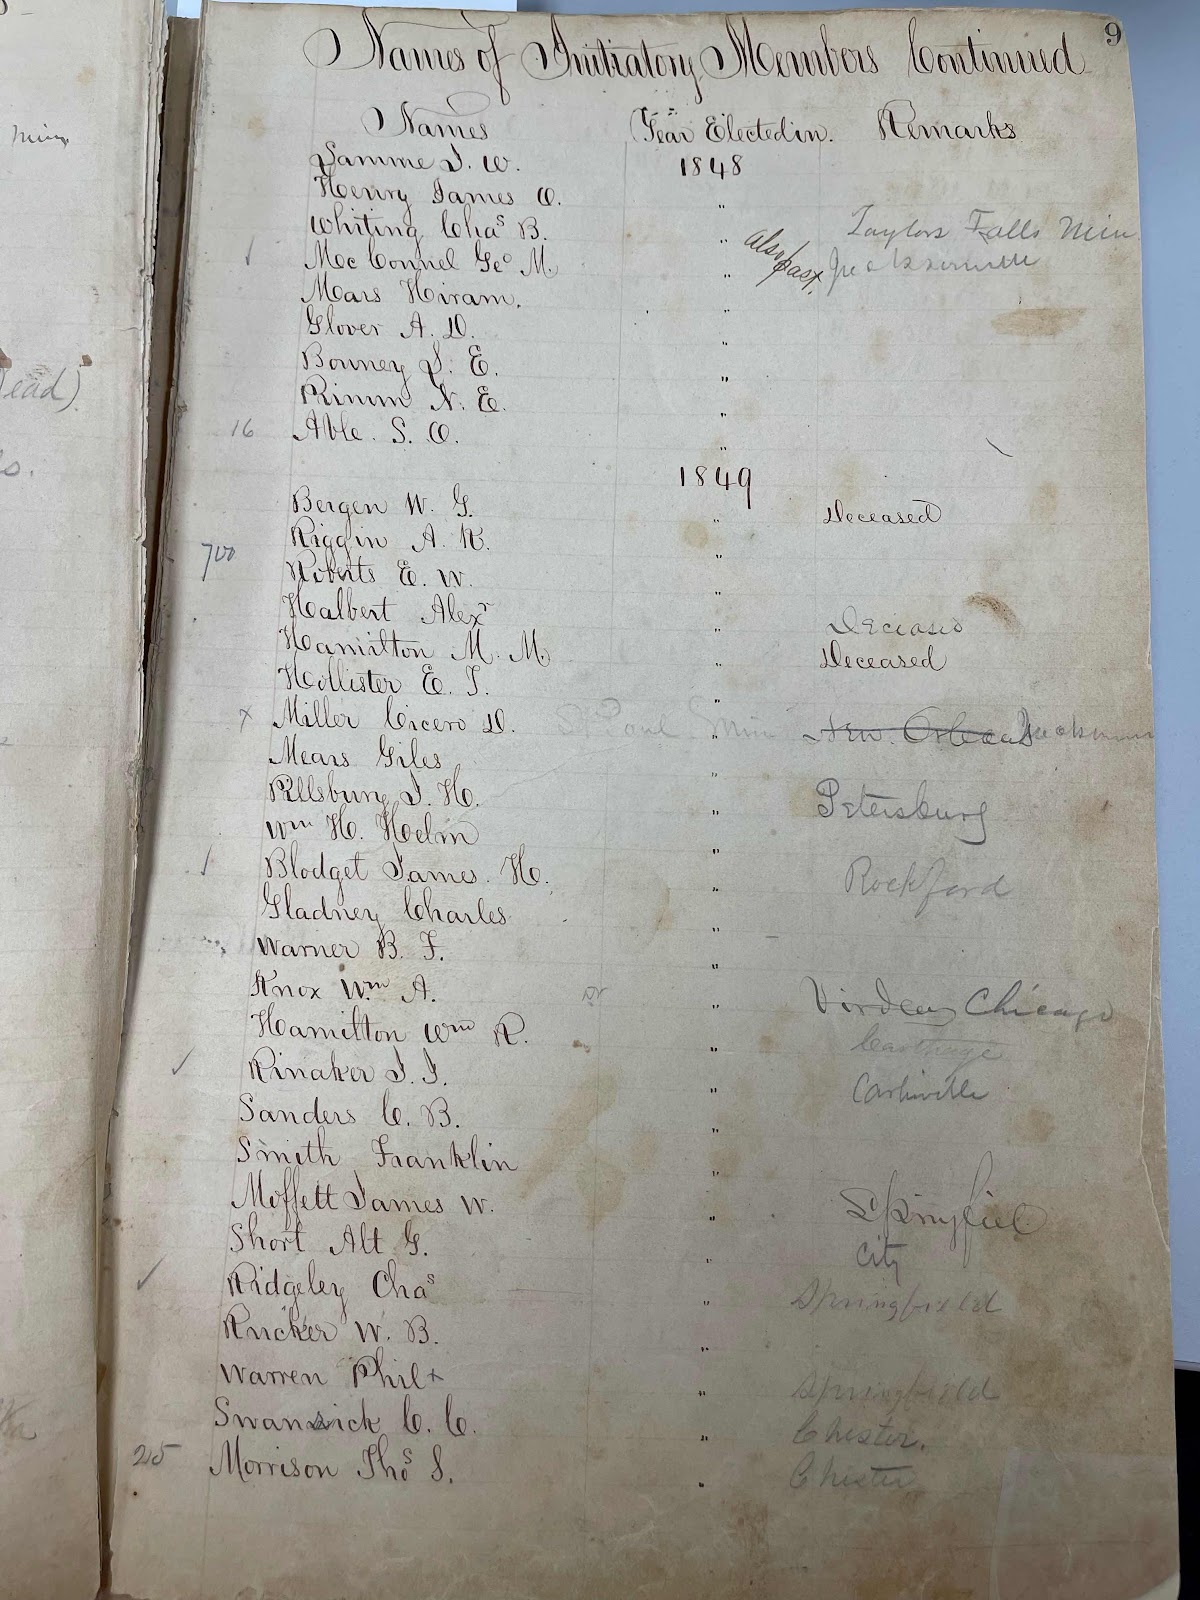 9
Names of Initiatory Members Continued
Names Year Elected in. Remarks
Samme I. W. 1848
Henry James O. "
Whiting Chas B. " Taylors Falls Min
Mc Connel Geo M. " also past Jacksonville
Mars Hiram. "
Glover A. D. "
Bonney S. E. "
Rimm N. E. "
16 Able. S. O. "
1849
Bergen W. G. " Deceased
Riggin A. K. "
700 Roberts E. W. "
Halbert Alexr " Deceased
Hamilton M. M. " Deceased
Hollister E. T. "
x Miller Cicero D. St Paul Min " New Orleans
Mears Giles "
Pillsbury I. H. " Petersburg
Wm H. Helm "
✓ Blodget James. H. " Rockford
Gladney Charles "
Warner B. F. "
Knox Wm A. " Virden Chicago
Hamilton Wm R. " Carthage
✓ Rinaker J. I. " Carlinville
Sanders C. B. "
Smith Franklin "
Moffett James W. " Springfield
Short Alt G. " City
✓ Ridgeley Chas " Springfield
Rucker W. B. "
Warren Phil x " Springfield
Swanwick C. C. " Chester.
25 Morrison Thos S. " Chester
Min
Dead)